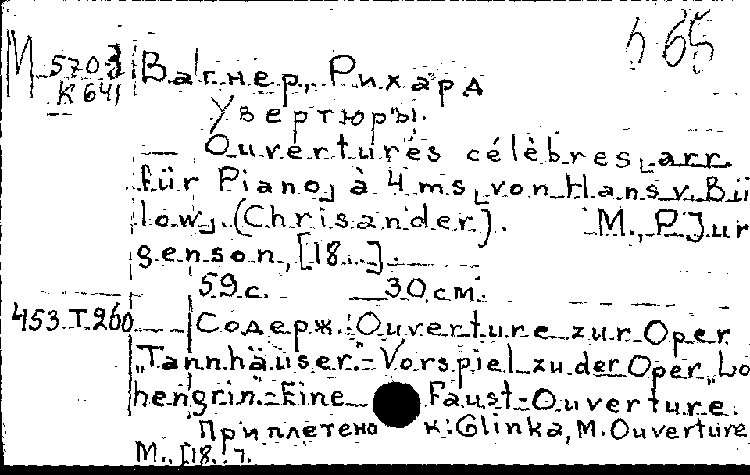 М 5703 Вагнер, Рихард
К 641
Увертюры.
— Ouvertures célèbres, arr.
für Piano, à 4 ms, von Hans v. Bü
low, (Chrisander). М., P. Jur
genson, [18..].
59 с. 30 см.
453.Т.260 Содерж.: Ouverture zur Oper
„Tannhäuser."-Vorspiel zu der Oper „Lo
hengrin."-Eine Faust-Ouverture.
Приплетено к: Glinka, M. Ouverture
М., [18..].